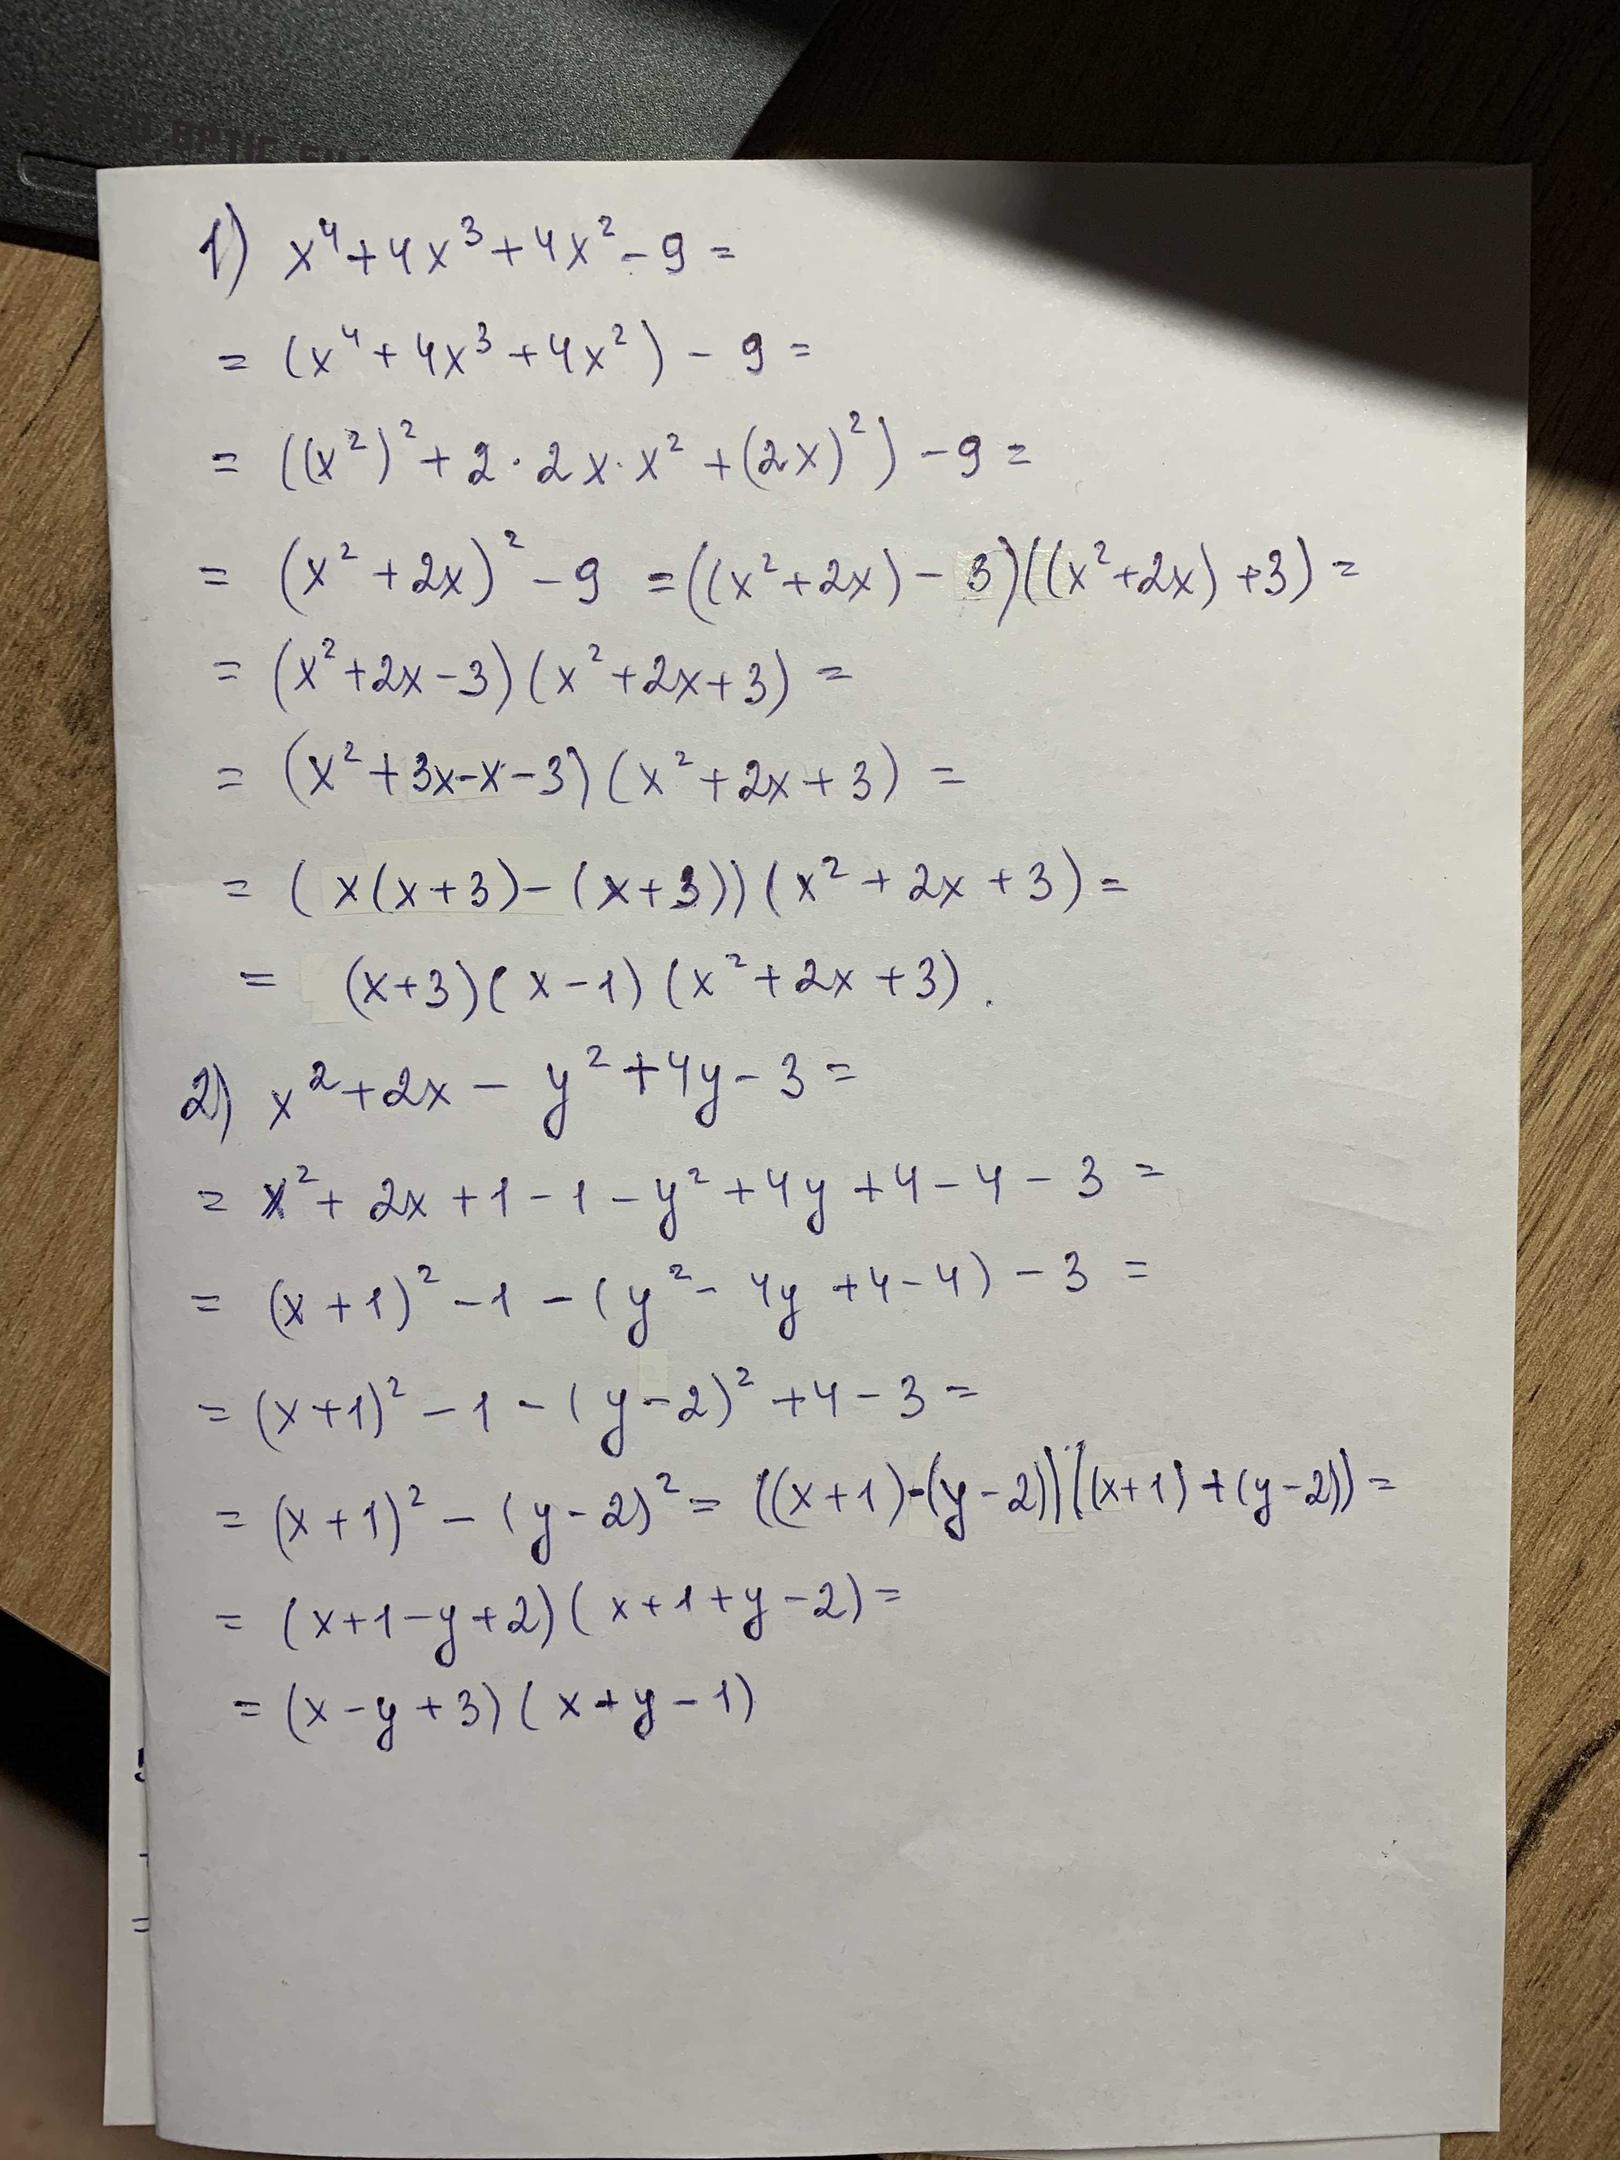 1) x⁴+4x³+4x²-9=
= (x⁴+4x³+4x²) - 9 =
= ((x²)²+2·2x·x²+(2x)²) -9 =
= (x²+2x)²-9 =((x²+2x)-3)((x²+2x)+3) =
= (x²+2x-3)(x²+2x+3) =
= (x²+3x-x-3)(x²+2x+3) =
= (x(x+3)-(x+3))(x²+2x+3) =
= (x+3)(x-1)(x²+2x+3).
2) x²+2x-y²+4y-3=
= x²+2x+1-1-y²+4y+4-4-3 =
= (x+1)²-1-(y²-4y+4-4)-3 =
= (x+1)²-1-(y-2)²+4-3 =
= (x+1)²-(y-2)² = ((x+1)-(y-2))((x+1)+(y-2)) =
= (x+1-y+2)(x+1+y-2) =
= (x-y+3)(x+y-1)